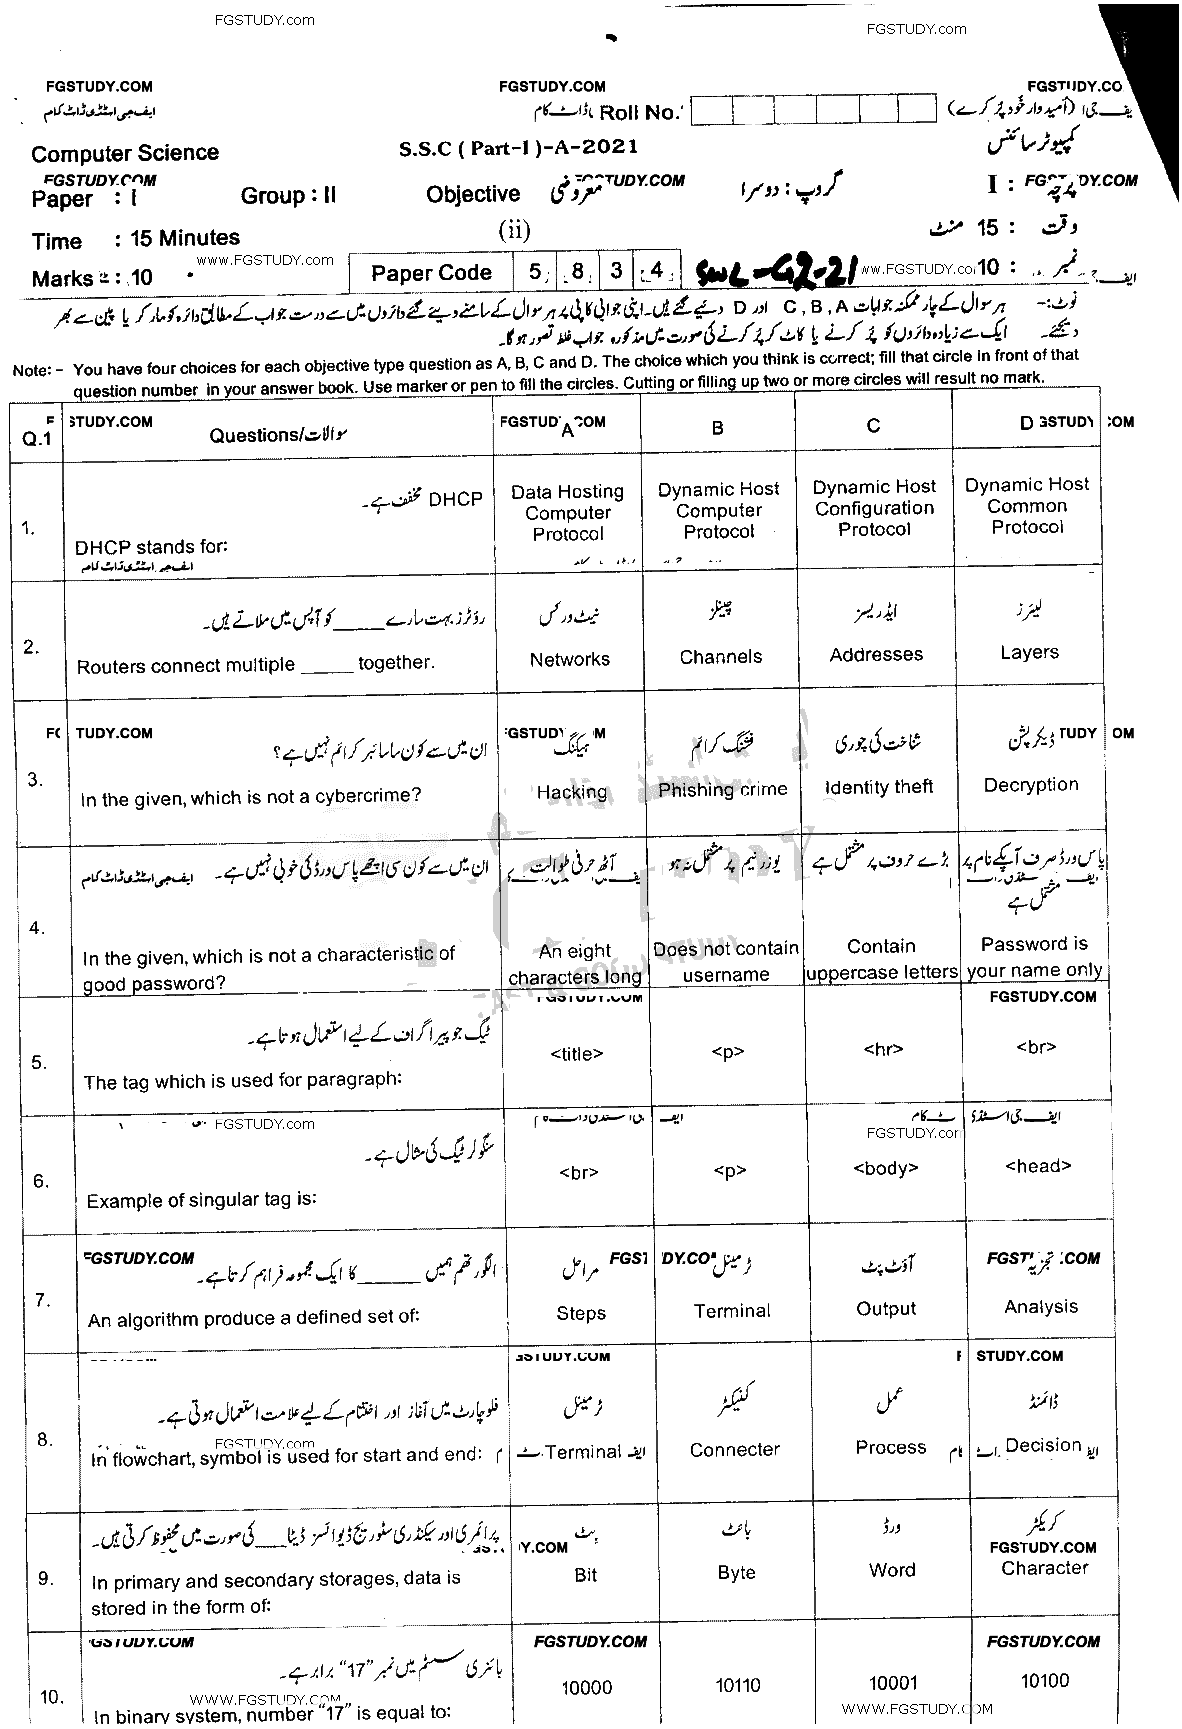 FGSTUDY.com
FGSTUDY.com
FGSTUDY.COM FGSTUDY.COM FGSTUDY.CO
ایف جی اسٹڈی ڈاٹ کام ڈاٹ کام Roll No. (امیدوار خود پُر کرے)
Computer Science S.S.C ( Part-I )-A-2021 کمپیوٹر سائنس
FGSTUDY.COM TUDY.COM DY.COM
Paper : I Group : II Objective معروضی گروپ : دوسرا پرچہ : I
Time : 15 Minutes (ii) وقت : 15 منٹ
www.FGSTUDY.com
Marks : 10 Paper Code 5 8 3 4 SWL-G2-21 نمبر : 10
نوٹ:- ہر سوال کے چار ممکنہ جوابات C , B , A اور D دیئے گئے ہیں۔ اپنی جوابی کاپی پر ہر سوال کے سامنے دیئے گئے دائروں میں سے درست جواب کے مطابق دائرہ کو مارکر یا پین سے بھر
دیجئے۔ ایک سے زیادہ دائروں کو پُر کرنے یا کاٹ کر پُر کرنے کی صورت میں مذکورہ جواب غلط تصور ہوگا۔
Note: - You have four choices for each objective type question as A, B, C and D. The choice which you think is correct; fill that circle in front of that
question number in your answer book. Use marker or pen to fill the circles. Cutting or filling up two or more circles will result no mark.
STUDY.COM
Q.1 Questions/سوالات A B C D
DHCP مخفف ہے۔
1. DHCP stands for: Data Hosting Computer Protocol Dynamic Host Computer Protocol Dynamic Host Configuration Protocol Dynamic Host Common Protocol
ایف جی اسٹڈی ڈاٹ کام
رؤٹرز بہت سارے _____ کو آپس میں ملاتے ہیں۔ نیٹ ورکس چینلز ایڈریسز لیئرز
2. Routers connect multiple _____ together. Networks Channels Addresses Layers
TUDY.COM
ان میں سے کون سا سائبر کرائم نہیں ہے؟ ہیکنگ فشنگ کرائم شناخت کی چوری ڈیکرپشن
3. In the given, which is not a cybercrime? Hacking Phishing crime Identity theft Decryption
ان میں سے کون سی اچھے پاس ورڈ کی خوبی نہیں ہے۔ آٹھ حرفی طوالت یوزر نیم پر مشتمل نہ ہو بڑے حروف پر مشتمل ہے پاس ورڈ صرف آپکے نام پر مشتمل ہے
ایف جی اسٹڈی ڈاٹ کام
4. In the given, which is not a characteristic of good password? An eight characters long Does not contain username Contain uppercase letters Password is your name only
FGSTUDY.COM FGSTUDY.COM
ٹیگ جو پیراگراف کے لیے استعمال ہوتا ہے۔
5. The tag which is used for paragraph: <title> <p> <hr> <br>
FGSTUDY.com
سنگولر ٹیگ کی مثال ہے۔
6. Example of singular tag is: <br> <p> <body> <head>
FGSTUDY.COM
الگورتھم ہمیں ______ کا ایک مجموعہ فراہم کرتا ہے۔ مراحل ٹرمینل آؤٹ پٹ تجزیہ
7. An algorithm produce a defined set of: Steps Terminal Output Analysis
STUDY.COM STUDY.COM
فلوچارٹ میں آغاز اور اختتام کے لیے علامت استعمال ہوتی ہے۔ ٹرمینل کنیکٹر عمل ڈائمنڈ
FGSTUDY.com
8. In flowchart, symbol is used for start and end: Terminal Connecter Process Decision
پرائمری اور سیکنڈری سٹوریج ڈیوائسز ڈیٹا ___ کی صورت میں محفوظ کرتی ہیں۔ بِٹ بائٹ ورڈ کریکٹر
FGSTUDY.COM
9. In primary and secondary storages, data is stored in the form of: Bit Byte Word Character
GSTUDY.COM FGSTUDY.COM FGSTUDY.COM
بائنری سسٹم میں نمبر "17" برابر ہے۔
10. In binary system, number "17" is equal to: 10000 10110 10001 10100
WWW.FGSTUDY.COM WWW.FGSTUDY.COM